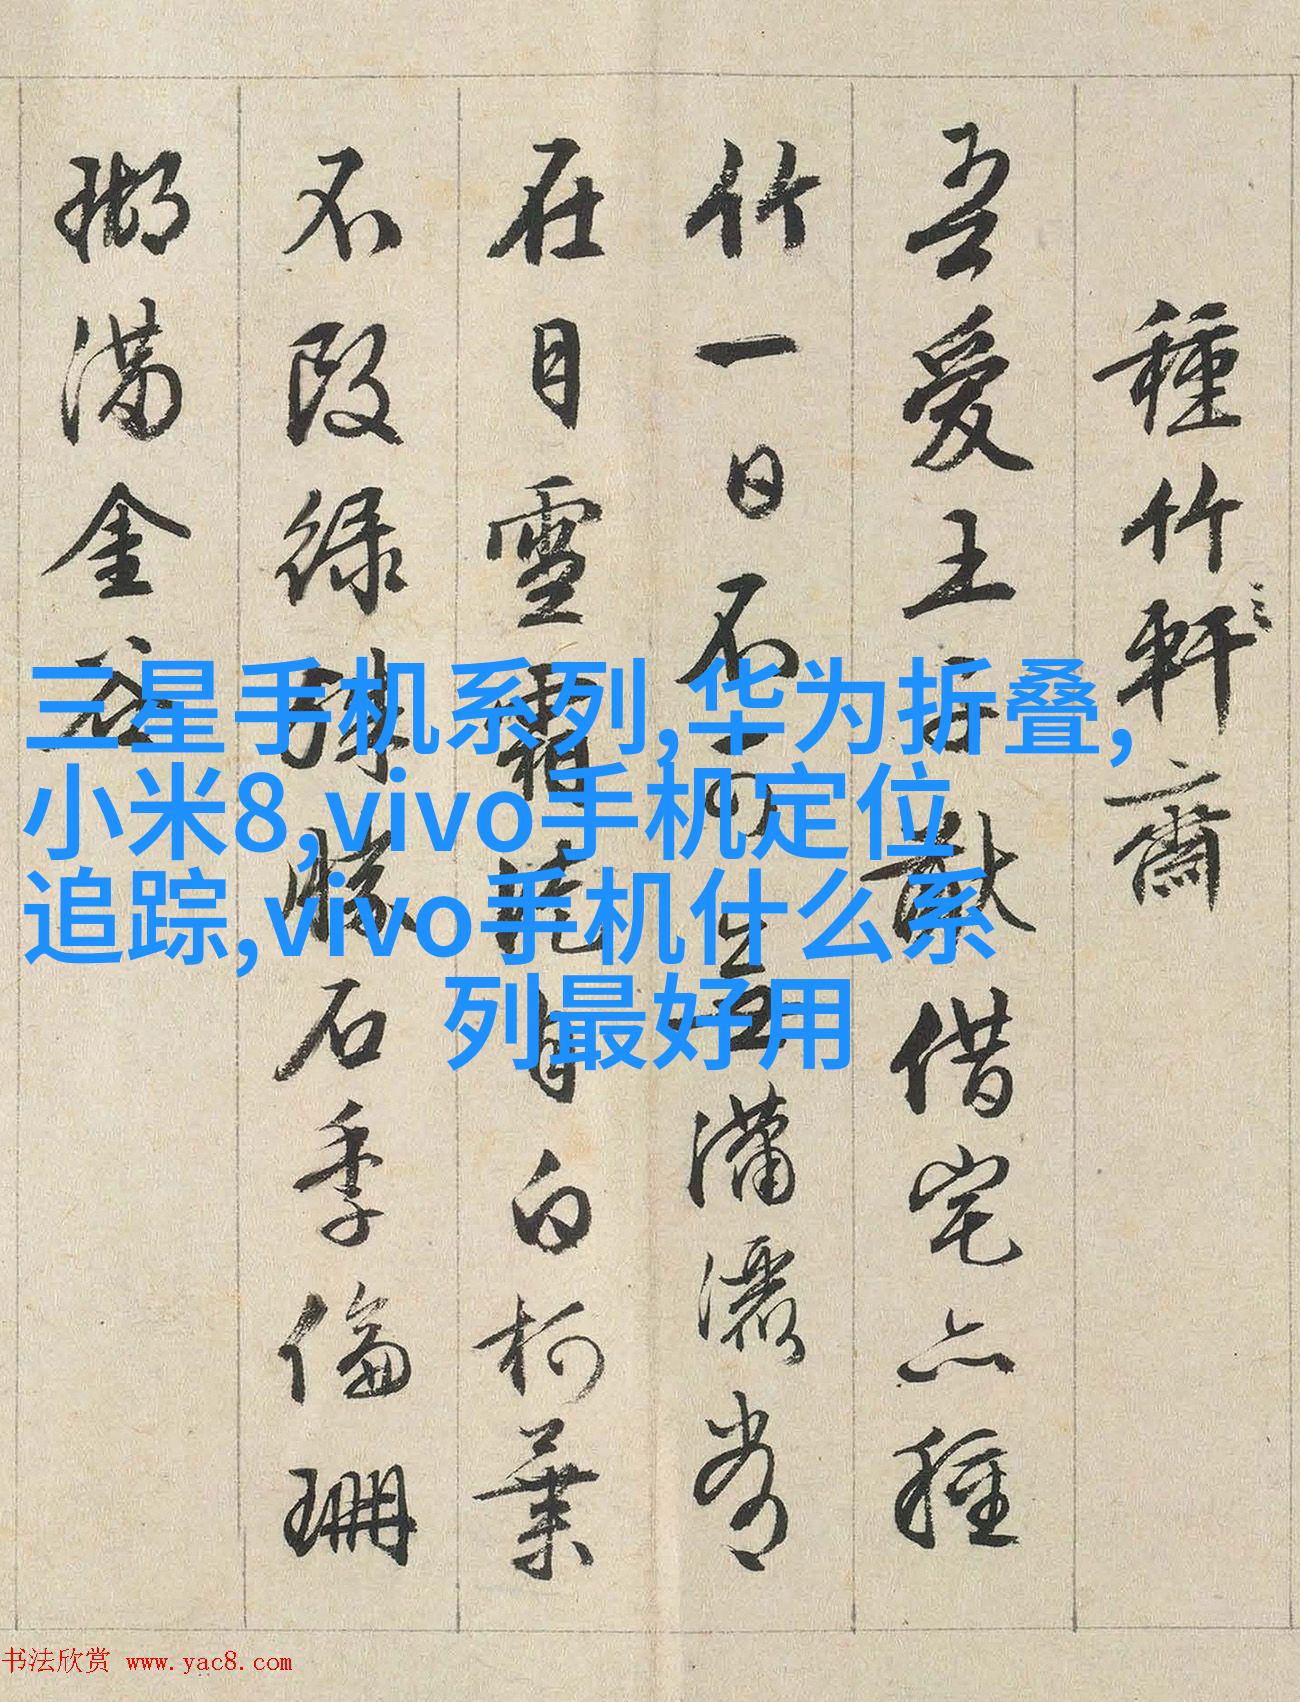 種竹軒齋
吾愛王子猷借宅亦種
竹一日不可無瀟灑常
在目雪霜徒自白柯葉
不改綠殊勝石季倫珊
瑚滿金谷
三星手机系列,华为折叠,
小米8,vivo手机定位
追踪,vivo手机什么系
列最好用
书法欣赏 www.yac8.com